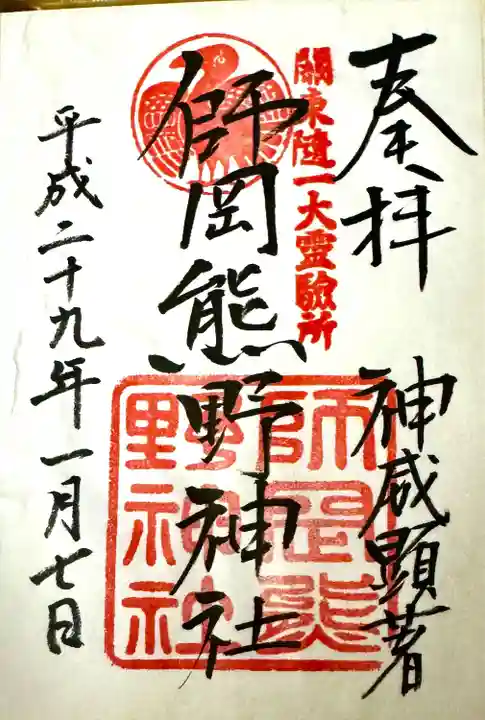 奏拝
神威顕著
關東随一大霊驗所
師岡熊野神社
師岡熊
野神社
平成二十九年一月七日